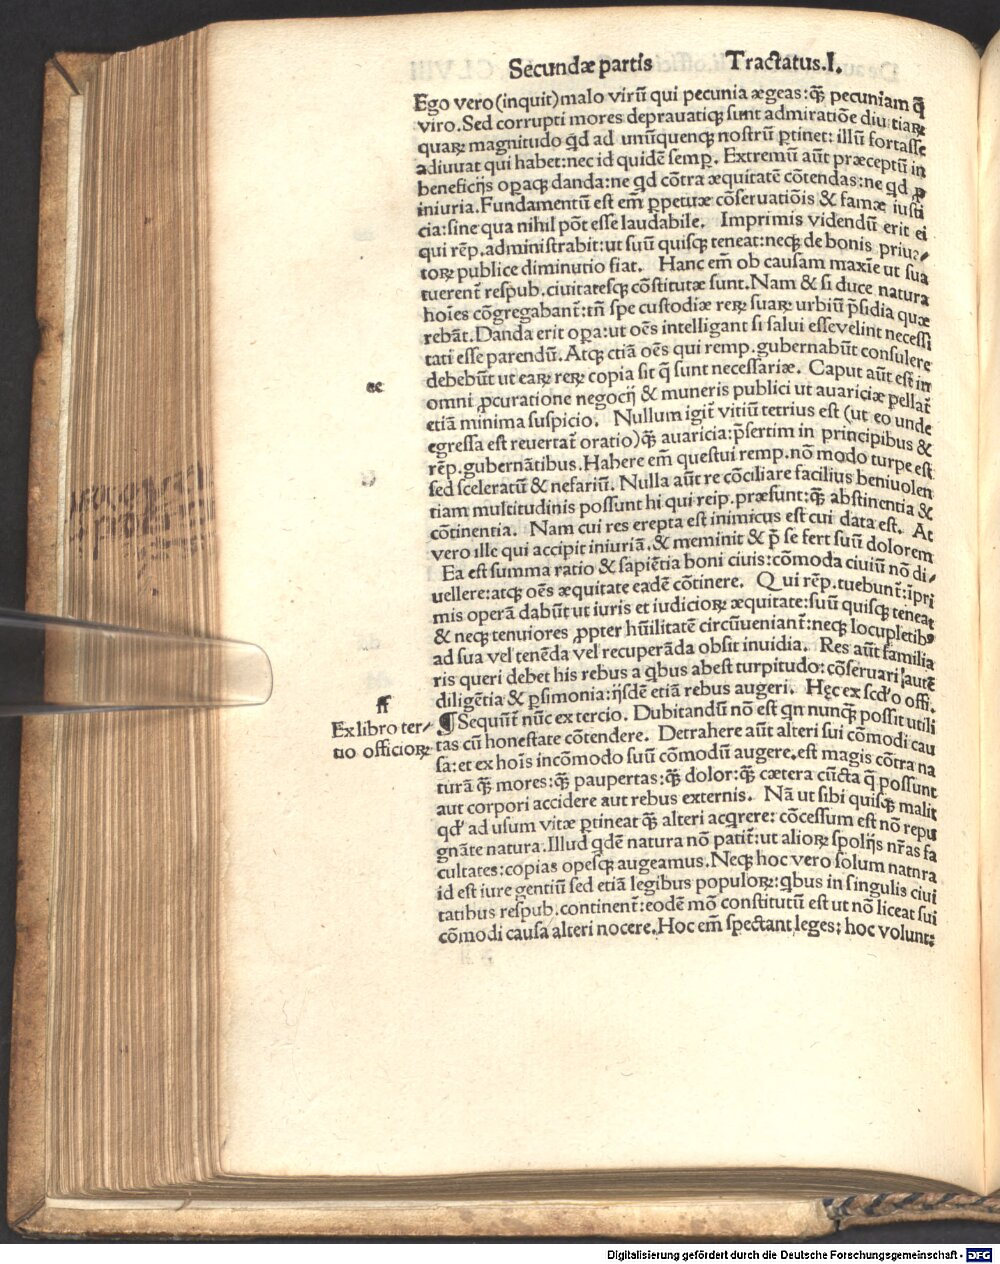 Secundæ partis Tractatus.I.
Ego vero (inquit) malo virū qui pecunia ægeas: qȝ pecuniam q̄
viro. Sed corrupti mores deprauatiqȝ sunt admiratiōe diu tiaꝝ
quaꝝ magnitudo qd ad unūquenqȝ nostrū ꝑtinet: illū fortasse
adiuuat qui habet: nec id quidē semꝑ. Extremū aūt præceptū in
beneficijs oꝑacȝ danda: ne qd cōtra æquitatē cōtendas: ne qd ꝓ
iniuria. Fundamentū est em̄ ꝑpetuæ cōseruatiōis & famæ iusti
cia: sine qua nihil pōt esse laudabile. Imprimis videndū erit ei
qui rēp. administrabit: ut suū quisqȝ teneat: neqȝ de bonis priua⸗
toꝝ publice diminutio fiat. Hanc em̄ ob causam maxīe ut sua
tuerent̄ respub. ciuitatesqȝ cōstitutæ sunt. Nam & si duce natura
hoīes cōgregabant̄: tn̄ spe custodiæ reꝝ suaꝝ urbiū p̄sidia quæ
rebāt. Danda erit oꝑa: ut oēs intelligant si salui essevelint necessi
tati esse parendū. Atqȝ etiā oēs qui remp. gubernabūt consulere
debebūt ut eaꝝ reꝝ copia sit q̄ sunt necessariæ. Caput aūt est in
ee
omni ꝓcuratione negocij & muneris publici ut auariciæ pellat̄
etiā minima suspicio. Nullum igit̄ vitiū tetrius est (ut eo unde
egressa est reuertat̄ oratio) qȝ auaricia: p̄sertim in principibus &
rēp. gubernātibus. Habere em̄ questui remp. nō modo turpe est
sed sceleratū & nefariū. Nulla aūt re cōciliare facilius beniuolen
tiam multitudinis possunt hi qui reip. præsunt: qȝ abstinentia &
cōtinentia. Nam cui res erepta est inimicus est cui data est. At
vero ille qui accipit iniuriā. & meminit & p̄ se fert suū dolorem
Ea est summa ratio & sapiētia boni ciuis: cōmoda ciuiū nō di⸗
uellere: atqȝ oēs æquitate eadē cōtinere. Qui rēp. tuebunt̄: īpri
mis operā dabūt ut iuris et iudicioꝝ æquitate: suū quisqȝ teneat
& neqȝ tenuiores ꝓpter hūilitatē circūueniant̄: neqȝ locupletibꝰ
ad sua vel tenēda vel recuperāda obsit inuidia. Res aūt familia
ris queri debet his rebus a qbus abest turpitudo: cōseruari aūtē
diligētia & ꝑsimonia: ijsdē etiā rebus augeri. Hęc ex scd̓o offi.
ff
Ex libro ter⸗
tio officioꝝ
¶ Sequūt̄ nūc ex tercio. Dubitandū nō est qn nunqȝ possit utili
tas cū honestate cōtendere. Detrahere aūt alteri sui cōmodi cau
sa: et ex hoīs incōmodo suū cōmodū augere. est magis cōtra na
turā qȝ mors: qȝ paupertas: qȝ dolor: qȝ cætera cūcta q̄ possunt
aut corpori accidere aut rebus externis. Nā ut sibi quisqȝ malit
qd̓ ad usum vitæ ꝑtineat qȝ alteri acqrere: cōcessum est nō repu
gnāte natura. Illud qdē natura nō patit̄: ut alioꝝ spolijs nr̄as fa
cultates: copias opesqȝ augeamus. Neqȝ hoc vero solum natnra
id est iure gentiū sed etiā legibus populoꝝ: qbus in singulis ciui
tatibus respub. continent̄: eodē mō constitutū est ut nō liceat sui
cōmodi causa alteri nocere. Hoc em̄ spectant leges: hoc volunt:
Digitalisierung gefördert durch die Deutsche Forschungsgemeinschaft - DFG